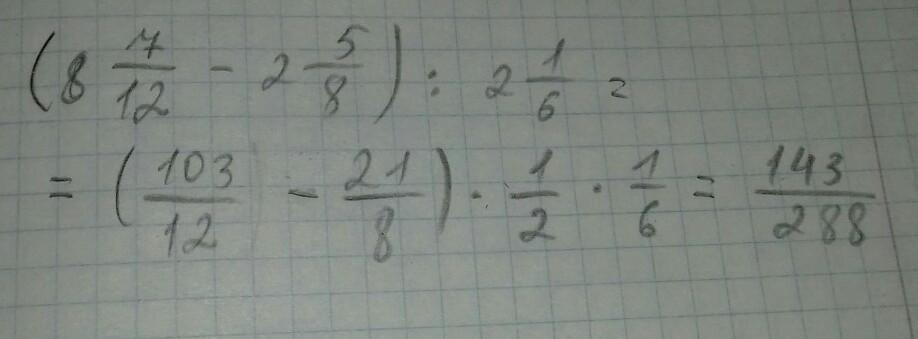 (8 7/12 - 2 5/8) : 2 1/6 =
= (103/12 - 21/8) · 1/2 · 1/6 = 143/288